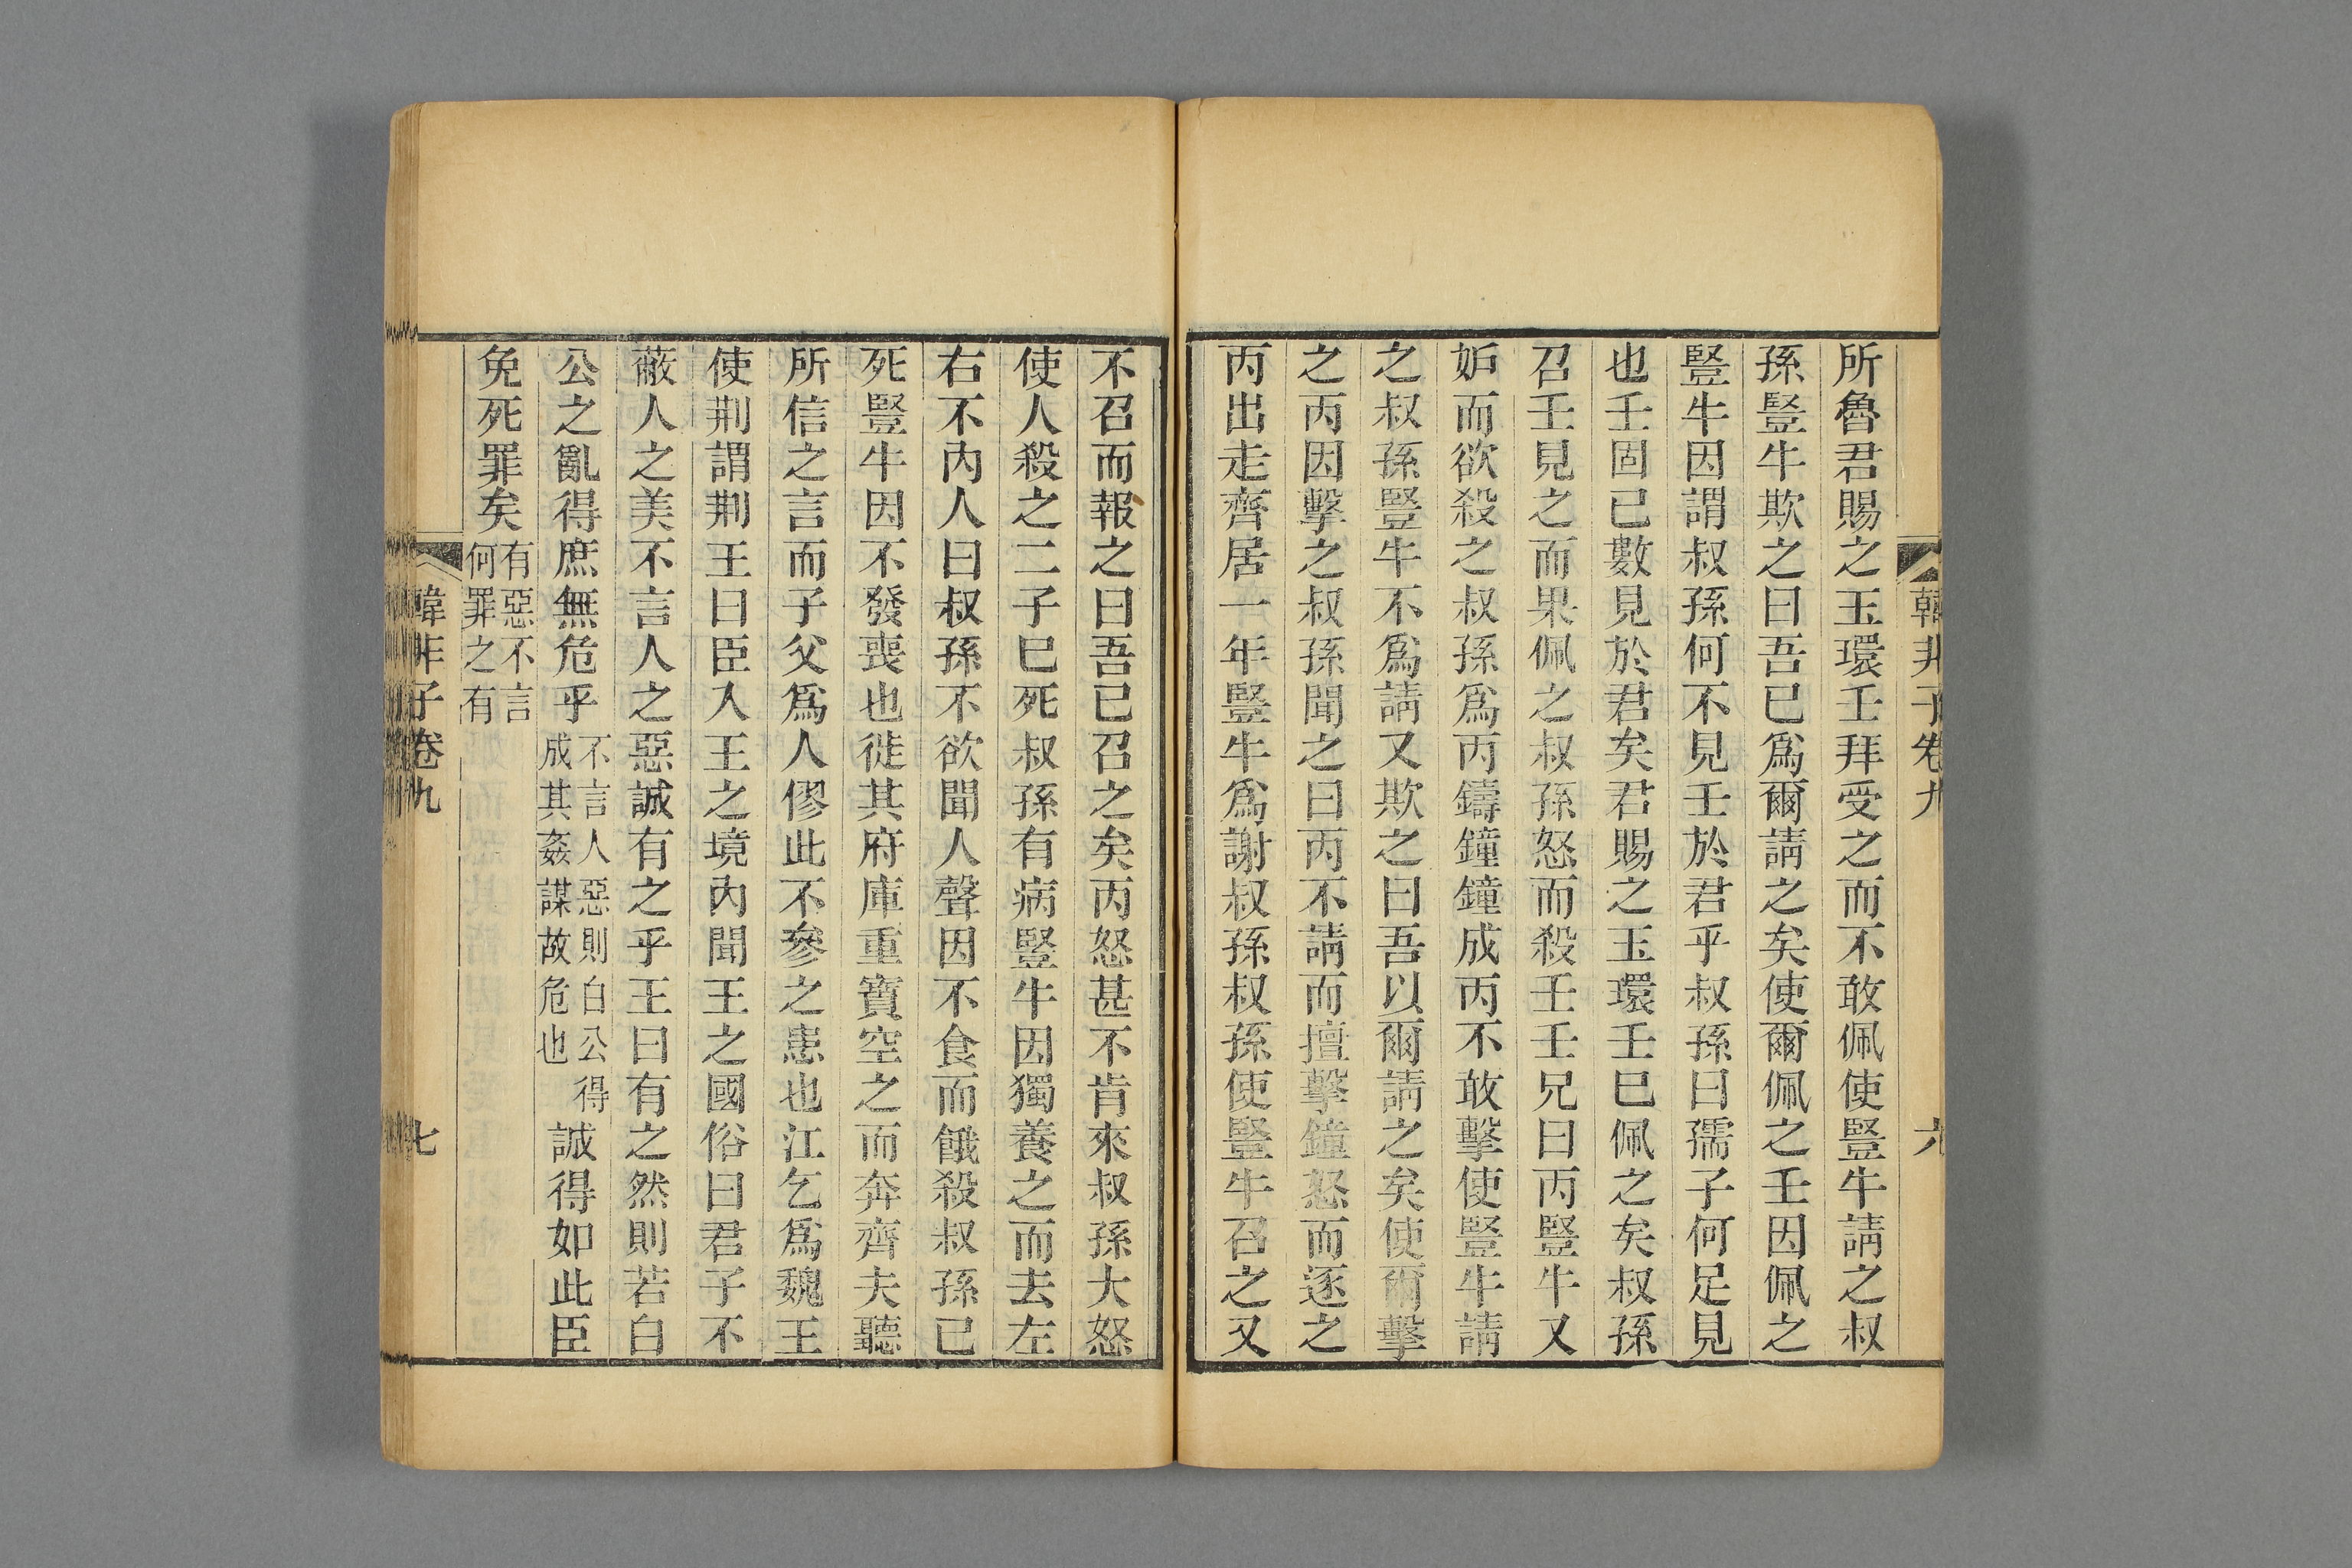 韓非子卷九
六
所魯君賜之玉環壬拜受之而不敢佩使豎牛請之叔
孫豎牛欺之曰吾已爲爾請之矣使爾佩之壬因佩之
豎牛因謂叔孫何不見壬於君乎叔孫曰孺子何足見
也壬固已數見於君矣君賜之玉環壬已佩之矣叔孫
召壬見之而果佩之叔孫怒而殺壬壬兄曰丙豎牛又
妒而欲殺之叔孫爲丙鑄鐘鐘成丙不敢擊使豎牛請
之叔孫豎牛不爲請又欺之曰吾以爾請之矣使爾擊
之丙因擊之叔孫聞之曰丙不請而擅擊鐘怒而逐之
丙出走齊居一年豎牛爲謝叔孫叔孫使豎牛召之又
不召而報之曰吾已召之矣丙怒甚不肯來叔孫大怒
使人殺之二子已死叔孫有病豎牛因獨養之而去左
右不內人曰叔孫不欲聞人聲因不食而餓殺叔孫已
死豎牛因不發喪也徙其府庫重寶空之而奔齊夫聽
所信之言而子父爲人僇此不參之患也江乞爲魏王
使荆謂荆王曰臣入王之境內聞王之國俗曰君子不
蔽人之美不言人之惡誠有之乎王曰有之然則若白
公之亂得庶無危乎不言人惡則白公得成其姦謀故危也誠得如此臣
免死罪矣有惡不言何罪之有
韓非子卷九
七